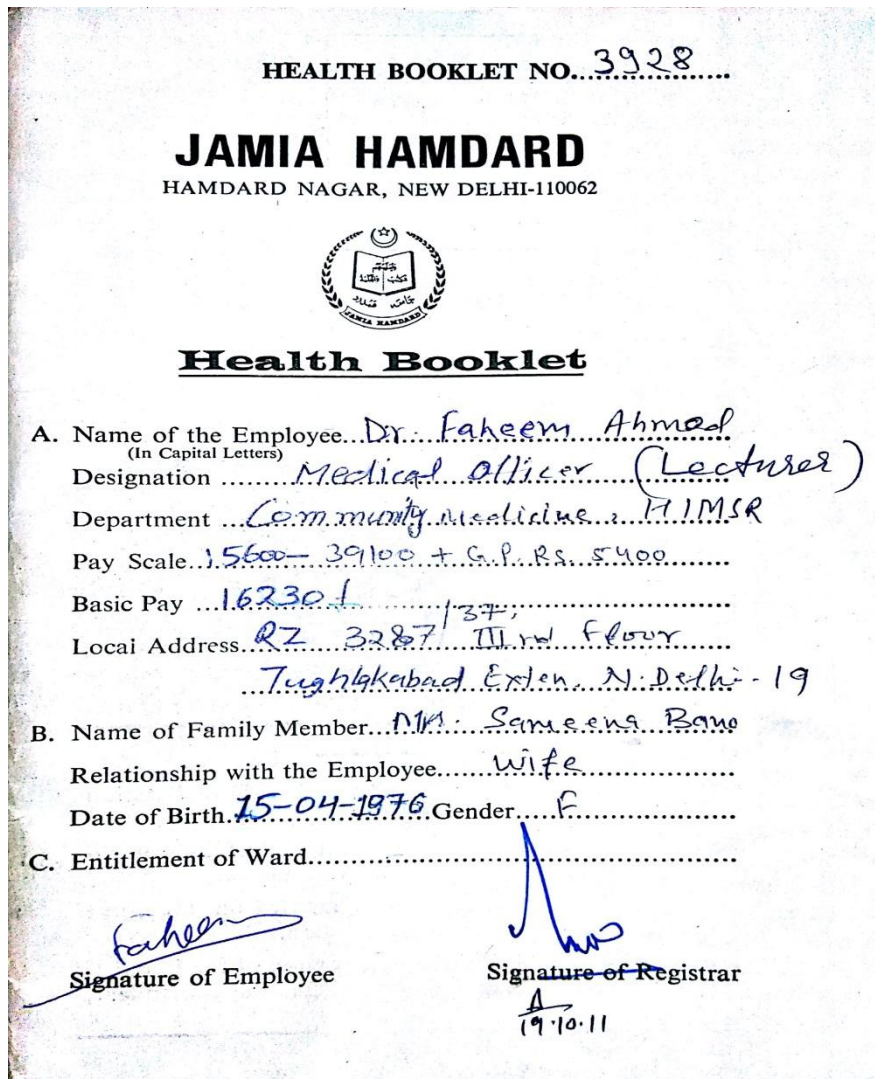 HEALTH BOOKLET NO. 3928
JAMIA HAMDARD
HAMDARD NAGAR, NEW DELHI-110062
JAMIA HAMDARD
Health Booklet
A. Name of the Employee Dr. Faheem Ahmad
(In Capital Letters)
Designation Medical Officer (Lecturer)
Department Community Medicine, HIMSR
Pay Scale 15600– 39100 + G.P. Rs. 5400
Basic Pay 16230/
Local Address RZ 3287/37, IIIrd Floor
Tughlakabad Exten. N. Delhi-19
B. Name of Family Member Mrs. Sameena Bano
Relationship with the Employee wife
Date of Birth 15-04-1976 Gender F
C. Entitlement of Ward
Faheem
Signature of Employee Signature of Registrar
19.10.11